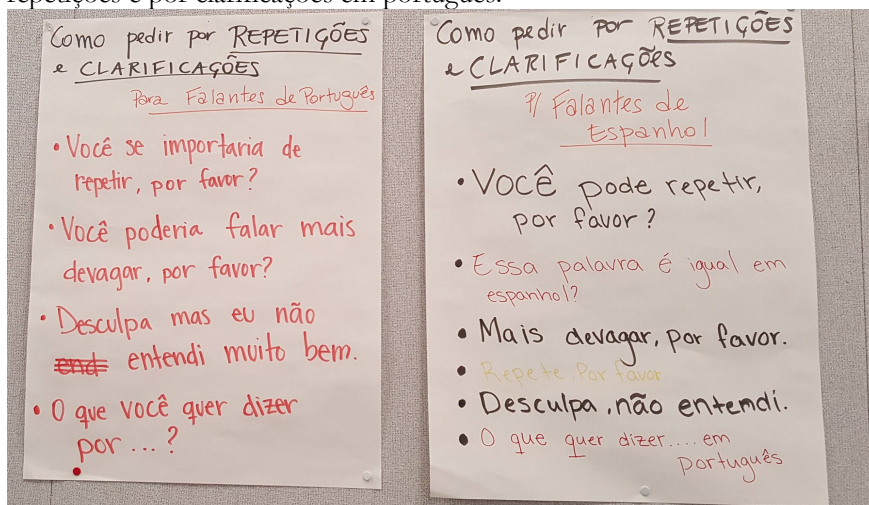 repetições e por clarificações em português.
Como pedir por REPETIÇÕES
e CLARIFICAÇÕES
Para Falantes de Português
• Você se importaria de
repetir, por favor?
• Você poderia falar mais
devagar, por favor?
• Desculpa mas eu não
end entendi muito bem.
• O que você quer dizer
por ... ?
•
Como pedir por REPETIÇÕES
e CLARIFICAÇÕES
P/ Falantes de
Espanhol
• Você pode repetir,
por favor?
• Essa palavra é igual em
espanhol?
• Mais devagar, por favor.
• Repete Por favor
• Desculpa, não entendi.
• O que quer dizer.... em
português